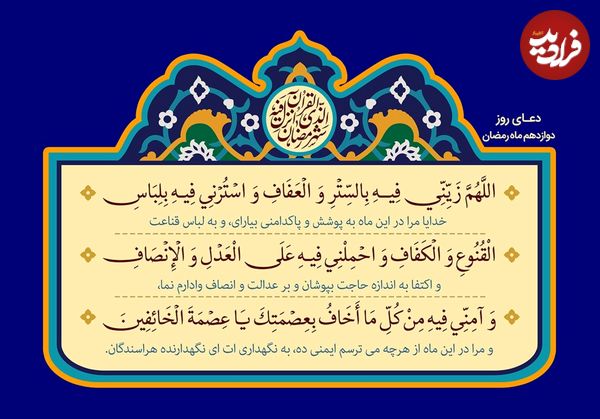 اخبار
فرادید
دعـای روز
دوازدهم ماه رمضان
شهر رمضان الذی انزل فیه القرآن
اللَّهُمَّ زَيِّنِّي فِيـهِ بِالسِّتْرِ وَ الْعَفَافِ وَ اسْتُرْنِي فِيهِ بِلِبَاسِ
خدایا مرا در این ماه به پوشش و پاکدامنی بیارای، و به لباس قناعت
الْقُنُوعِ وَ الْكَفَافِ وَ احْمِلْنِي فِيـهِ عَلَى الْعَدْلِ وَ الْإِنْصَافِ
و اکتفا به اندازه حاجت بپوشان و بر عدالت و انصاف وادارم نما،
وَ آمِنِّي فِيهِ مِنْ كُلِّ مَا أَخَافُ بِعِصْمَتِكَ يَا عِصْمَةَ الْخَائِفِينَ
و مرا در این ماه از هرچه می ترسم ایمنی ده، به نگهداری ات ای نگهدارنده هراسندگان.